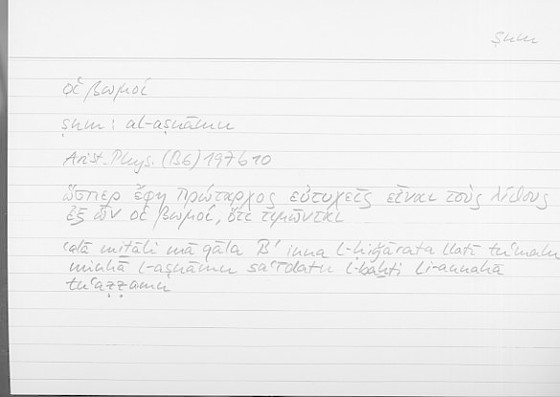 ṣnm
οἱ βωμοί
ṣnm: al-aṣnāmu
Arist. Phys. (B6) 197b10
ὥσπερ ἔφη Πρώταρχος εὐτυχεῖς εἶναι τοὺς λίθους
ἐξ ὧν οἱ βωμοί, ὅτι τιμῶνται
ʿalā miṯāli mā qāla B′ inna l-ḥiǧārata llatī tuʿmalu
minhā l-aṣnāmu saʿīdatu l-baḫti li-annahā
tuʿaẓẓamu